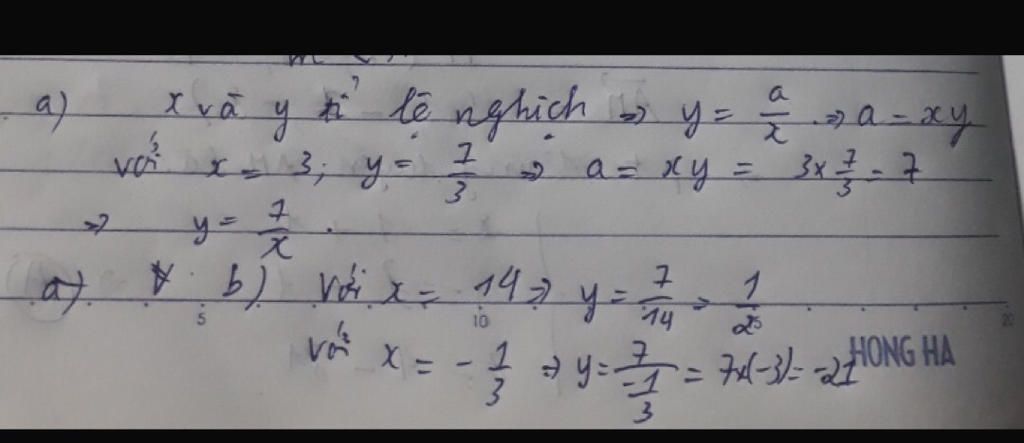 a) x và y tỉ lệ nghịch => y = a/x => a = xy
với x = 3; y = 7/3 => a = xy = 3x 7/3 = 7
=> y = 7/x.
a) b) Với x = 14 => y = 7/14 = 1/2
5 10 20
với x = -1/3 => y = 7/(-1/3) = 7x(-3) = -21
HONG HA